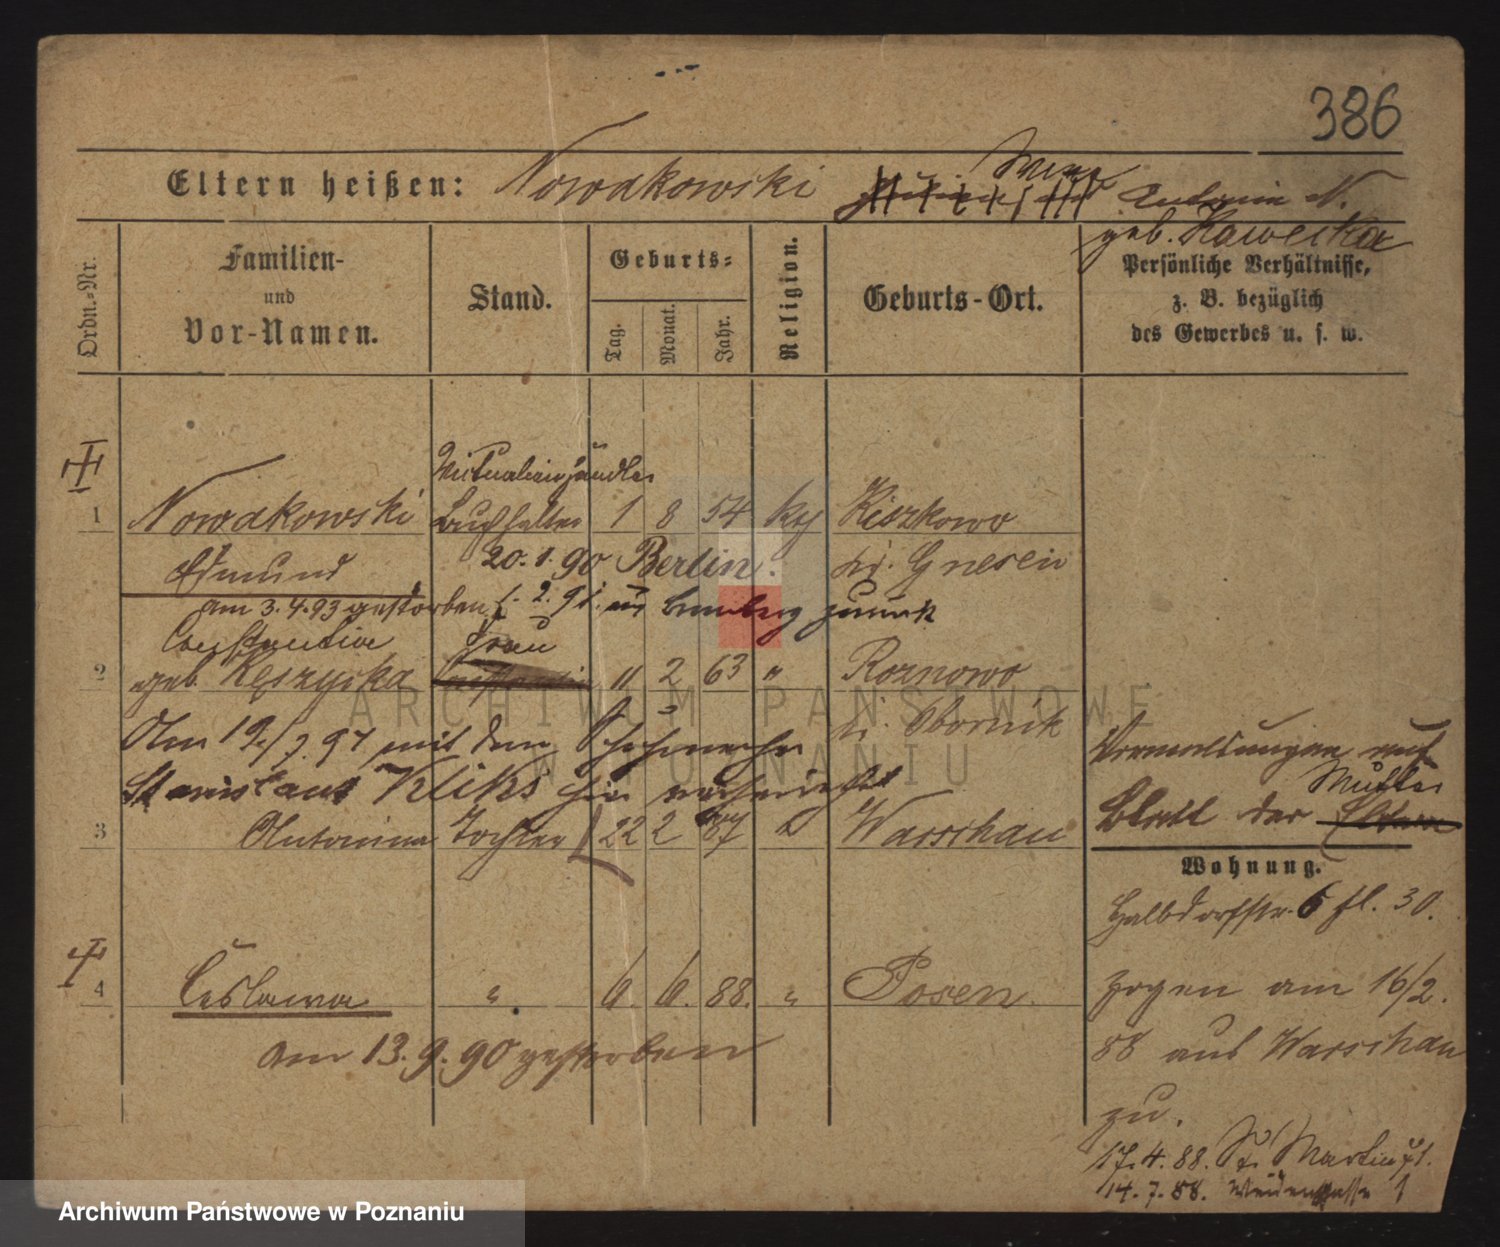 386
Eltern heißen: Nowakowski Antonie N.
geb. Kawecka
Ordn.-Nr.
Familien-
und
Vor-Namen.
Stand.
Geburts-
Tag.
Monat.
Jahr.
Religion.
Geburts-Ort.
Persönliche Verhältnisse,
z. B. bezüglich
des Gewerbes u. s. w.
Victualienhändler
1 Nowakowski Buchhalter 1 8 54 kth Kiszkowo
Edmund 20.1.90 Berlin. Kr. Gnesen
am 3.4.93 gestorben 2. 91. aus zurück
Constantia Frau
2 geb. Kęszycka 11 2 63 " Roznowo
Kr. Obornik
Am 19/7 97 mit dem Schuhmacher
Stanislaus Kliks hier verheirathet
Vermerkungen auf
Mutter
Blatt der Eltern
3 Antonina Tochter 22 2 87 " Warschau
Wohnung.
Halbdorfstr. 6 fl. 30.
4 Ceslawa " 6. 6. 88. " Posen
am 13.9.90 gestorben
zogen am 16/2.
88 aus Warschau
zu.
17.4.88. St. Martin 71.
14.7.88. Weidengasse 1
ARCHIWUM PAŃSTWOWE
W POZNANIU
Archiwum Państwowe w Poznaniu